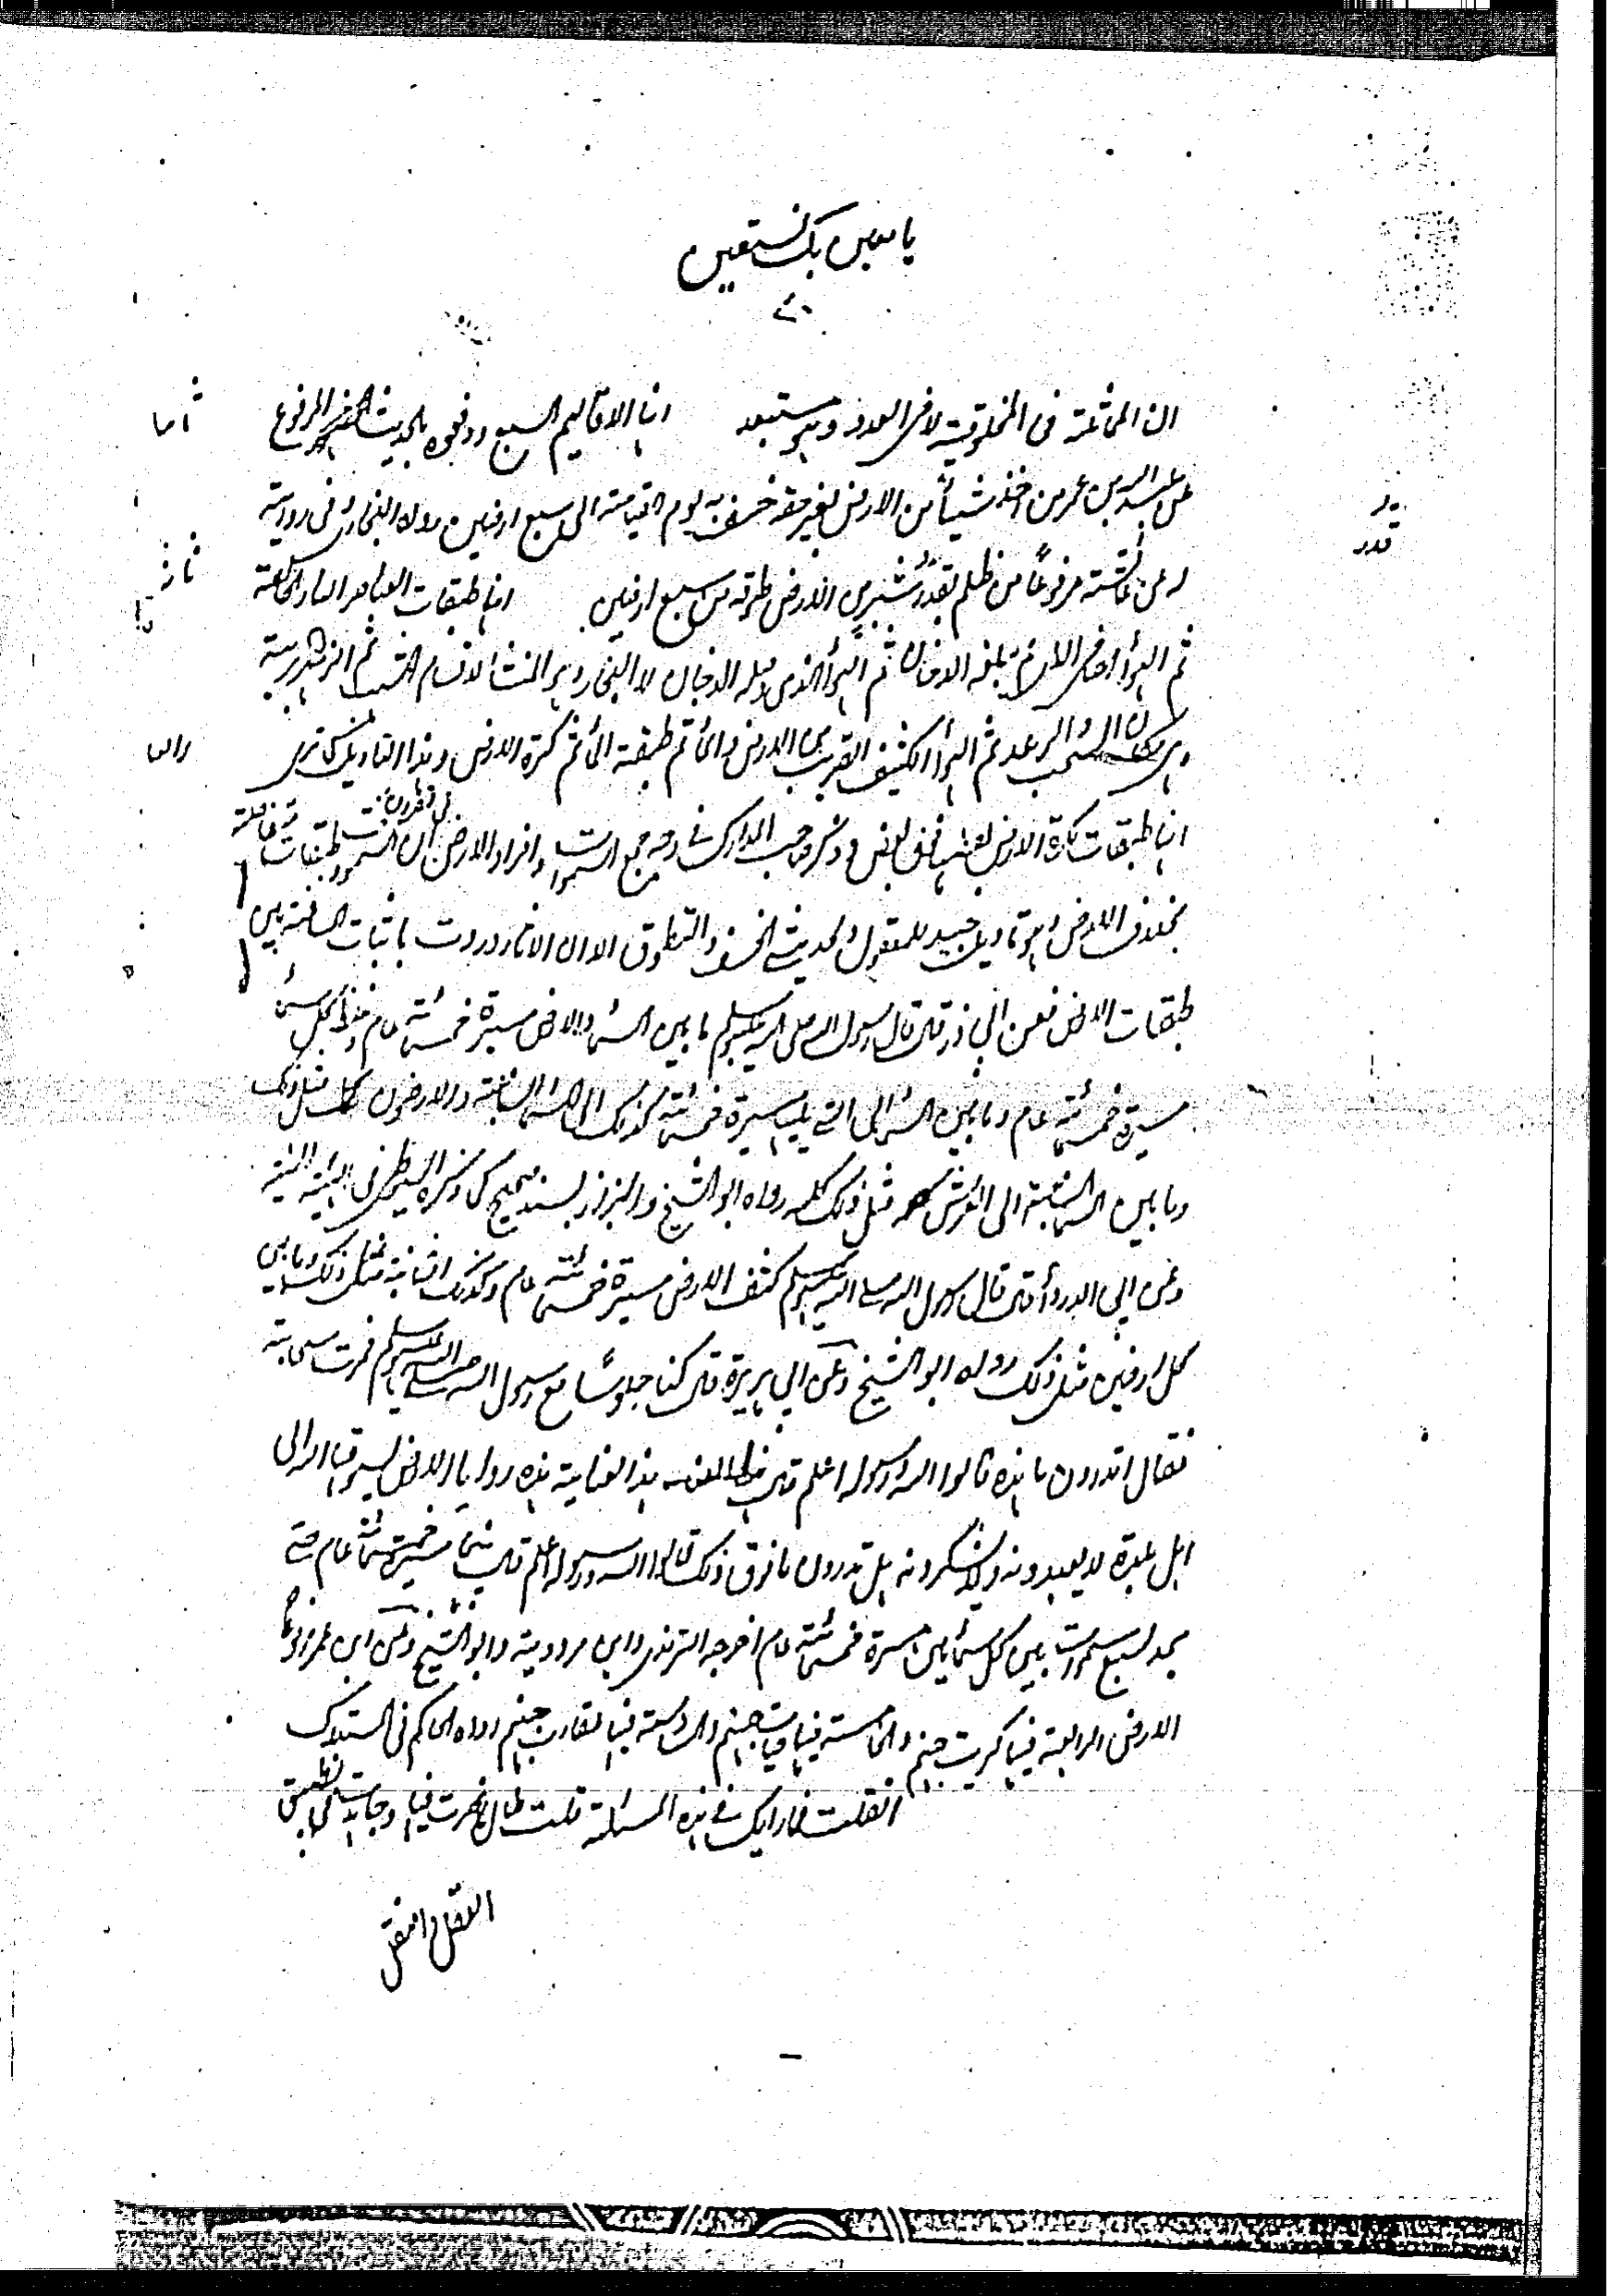 يا معين بك نستعين
ان المماثلة في المخلوقية لا في العدد وهو مستبعد انها الاقاليم السبع ودفعوه بالحديث المرفوع
عن عبد الله بن عمر من اخذ شيئاً من الارض بغير حقه خسف به يوم القيامة الى سبع ارضين رواه البخاري وفي رواية
له عن عائشة مرفوعاً من ظلم بقدر شبر من الارض طوقه من سبع ارضين انها طبقات العناصر النار
ثم الهواء ثم الهواء الذي الدخان ثم الزمهريرية
وهي مكان السحب والرعد ثم الهواء الكثيف القريب من الارض والماء ثم طبقة ثم كرة الارض وهذا التاويل كما ترى
انها طبقات كرة الارض بعضها فوق بعض وذكر صاحب المدارك في وجه جمع السموات وافراد الارض ان السموات طبقات
بخلاف الارض وهو تاويل جيد للمعقول ولحديثي الخسف والتطوق الا ان الاثار وردت باثبات المسافة بين
طبقات الارض فعن ابي ذر قال قال رسول الله صلى الله عليه وسلم ما بين السماء والارض مسيرة خمسمائة عام وغلظ كل سماء
مسيرة خمسمائة عام وما بين السماء الى التي تليها مسيرة خمسمائة كذلك الى السماء السابعة والارضون مثل ذلك
وما بين السماء السابعة الى العرش مثل ذلك كله رواه ابو الشيخ والبزار بسند صحيح كما ذكره السيوطي في الهيئة السنية
وعن ابي الدرداء قال قال رسول الله صلى الله عليه وسلم كثف الارض مسيرة خمسمائة عام وكذلك الثانية مثل ذلك وما بين
كل ارضين مثل ذلك رواه ابو الشيخ وعن ابي هريرة قال كنا جلوساً مع رسول الله صلى الله عليه وسلم فمرت سحابة
فقال اتدرون ما هذه قالوا الله ورسوله اعلم قال هذه روايا الارض يسوقها الله الى
اهل بلدة لا يعبدونه ولا يشكرونه هل تدرون ما فوق ذلك قالوا الله ورسوله اعلم قال مسيرة خمسمائة عام حتى
عد سبع سموات بين كل سمائين مسيرة خمسمائة عام اخرجه الترمذي وابن مردوية وابو الشيخ وعن ابن عمر مرفوعاً
الارض الرابعة فيها كبريت جهنم والخامسة فيها حيات جهنم والسادسة فيها عقارب جهنم رواه الحاكم في المستدرك
فان قلت فما رايك في هذه المسئلة قلت
العقل والنقل